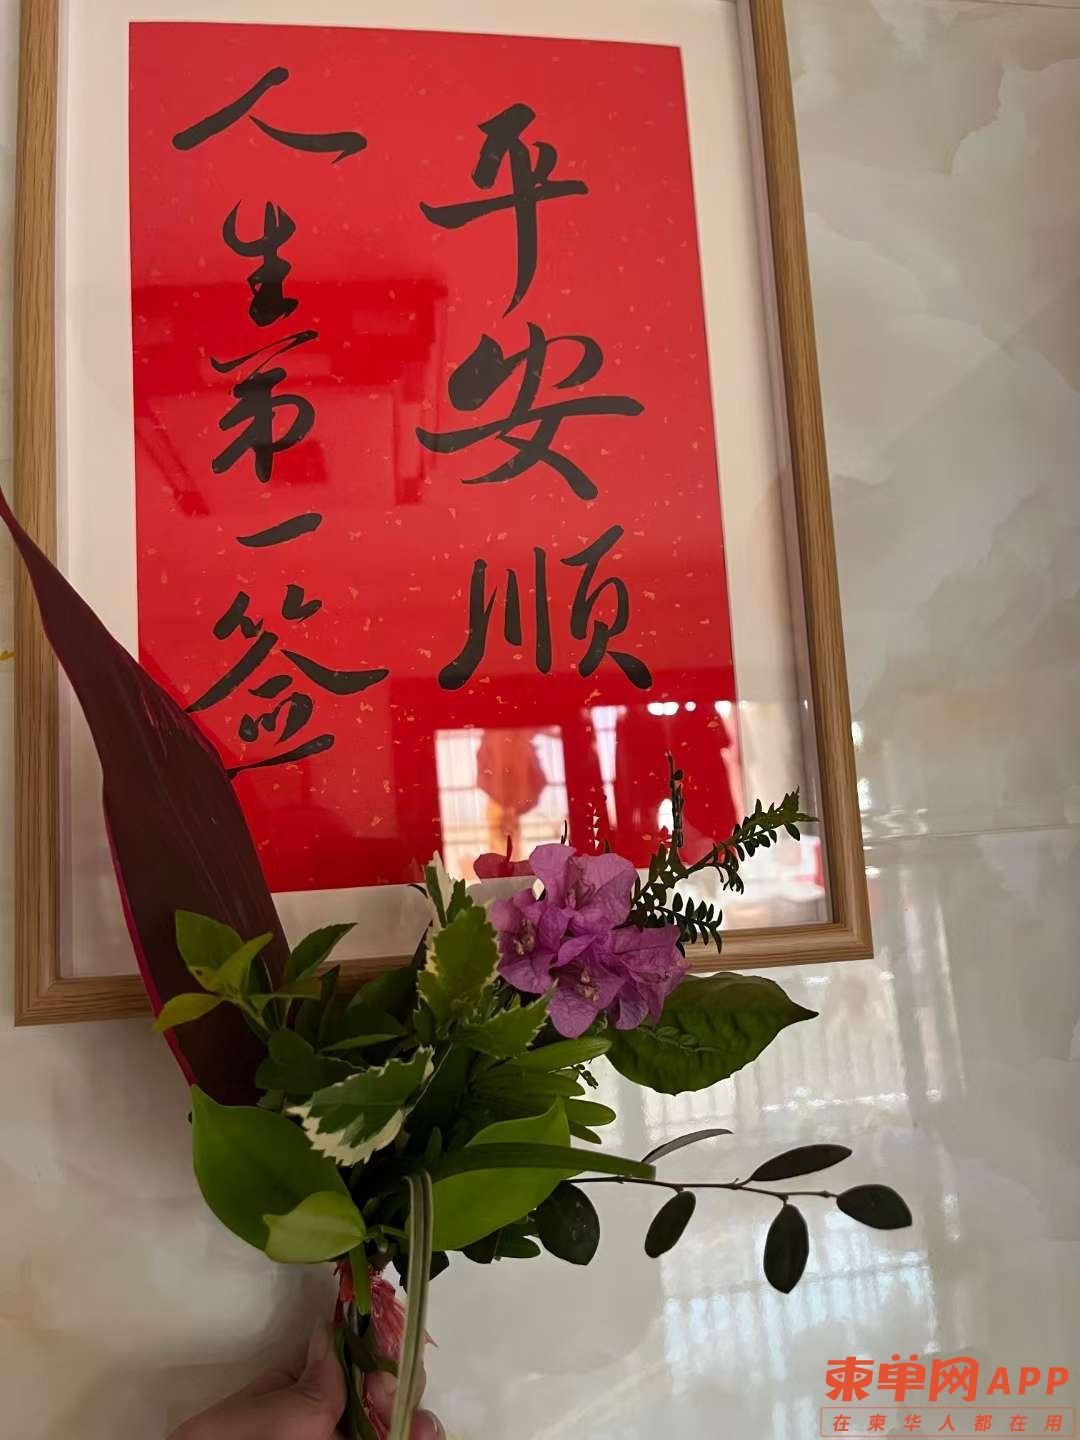 平安顺
人生第一签
柬单网APP
在柬华人都在用